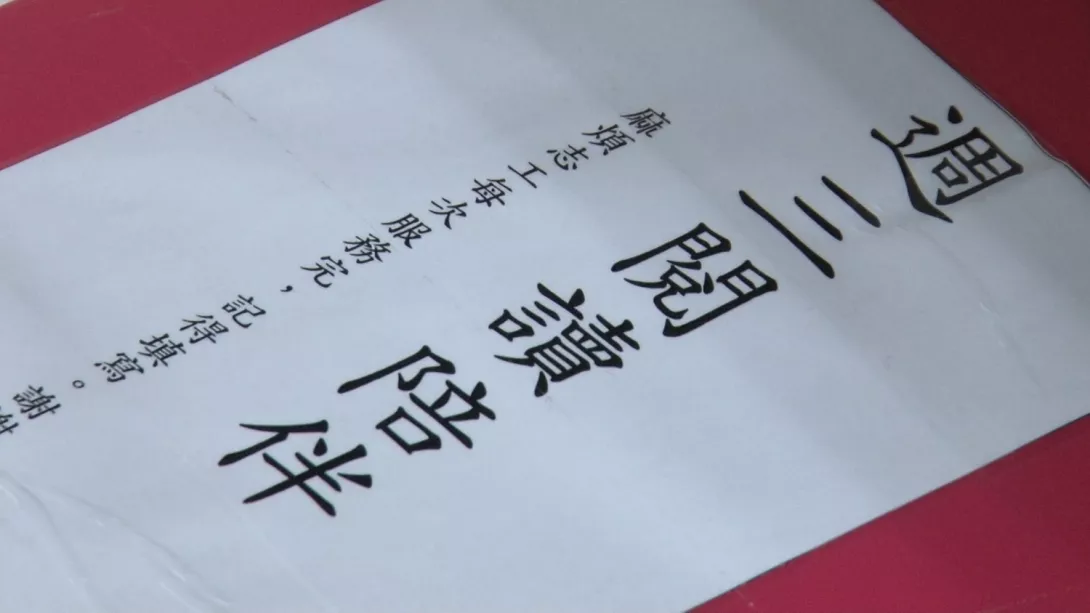 週三閱讀陪伴
麻煩志工每次服務完，記得填寫。謝謝